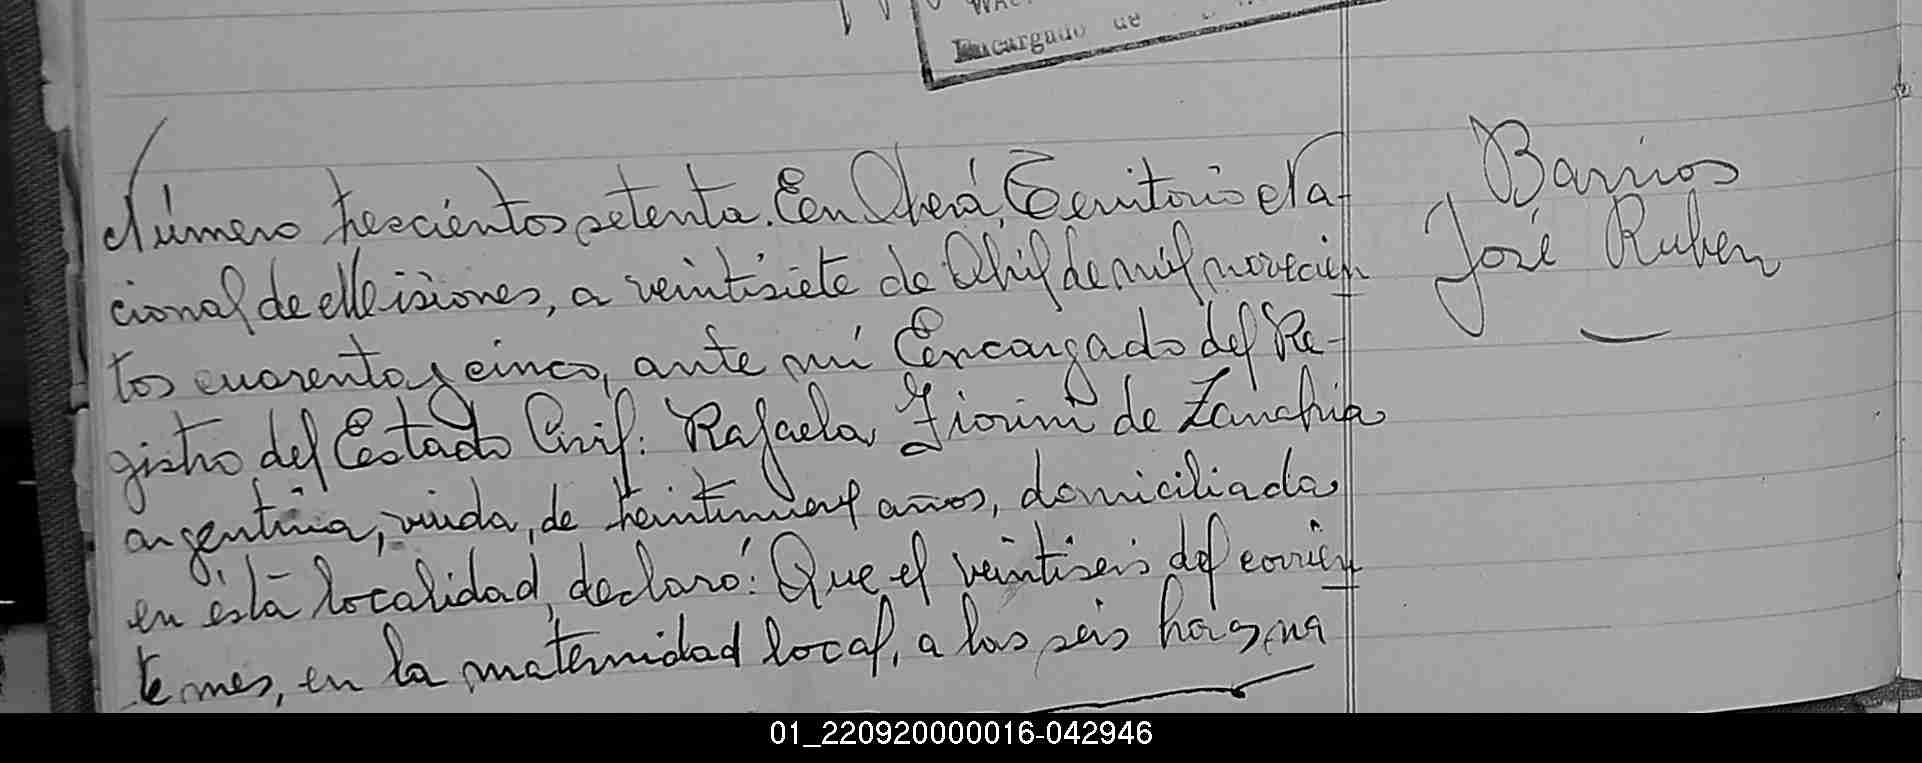 Encargado de
Número trescientos setenta. En Oberá, Territorio Na-
cional de Misiones, a veintisiete de Abril de mil novecien-
tos cuarenta y cinco, ante mí Encargado del Re-
gistro del Estado Civil: Rafaela Fiorini de Zanchia
argentina, viuda, de treintinueve años, domiciliada
en esta localidad, declaró: Que el veintiseis del corrien-
te mes, en la maternidad local, a las seis horas, na
Barrios
José Ruben
01_220920000016-042946